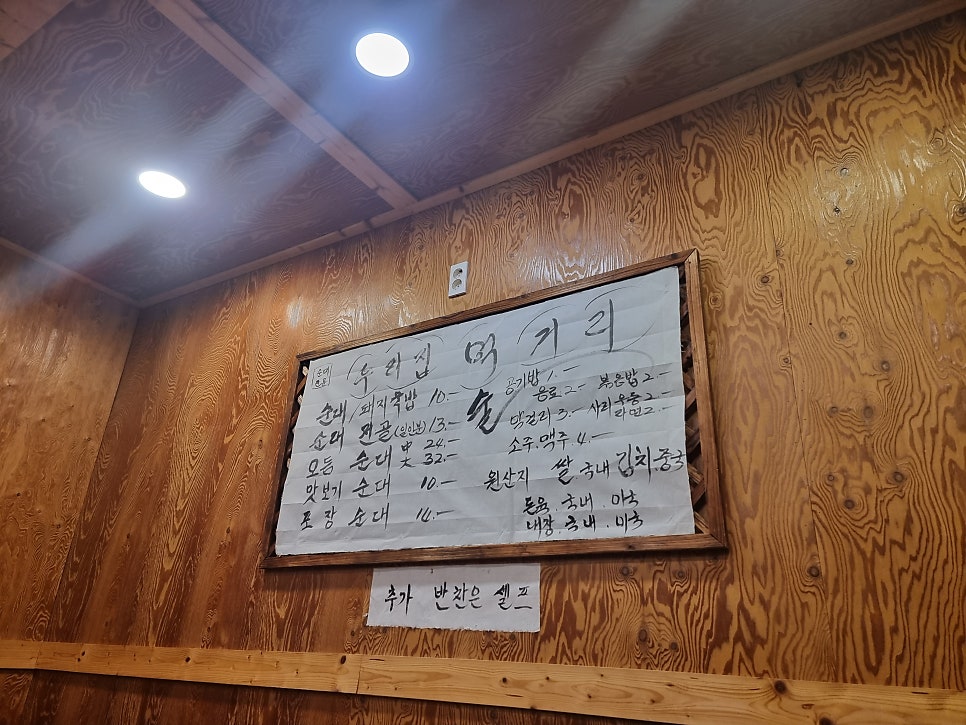 순대
우리집 먹거리
순대/돼지국밥 10.-
순대 전골(일인분) 13.-
모듬 순대 中 24.-
大 32.-
맛보기 순대 10.-
포장 순대 14.-
술
공기밥 1.-
음료 2- 볶음밥 2-
막걸리 3.- 사리 우동 라면 2.-
소주.맥주 4.-
원산지 쌀.국내 김치.중국
돈육.국내.미국
내장.국내.미국
추가 반찬은 셀프